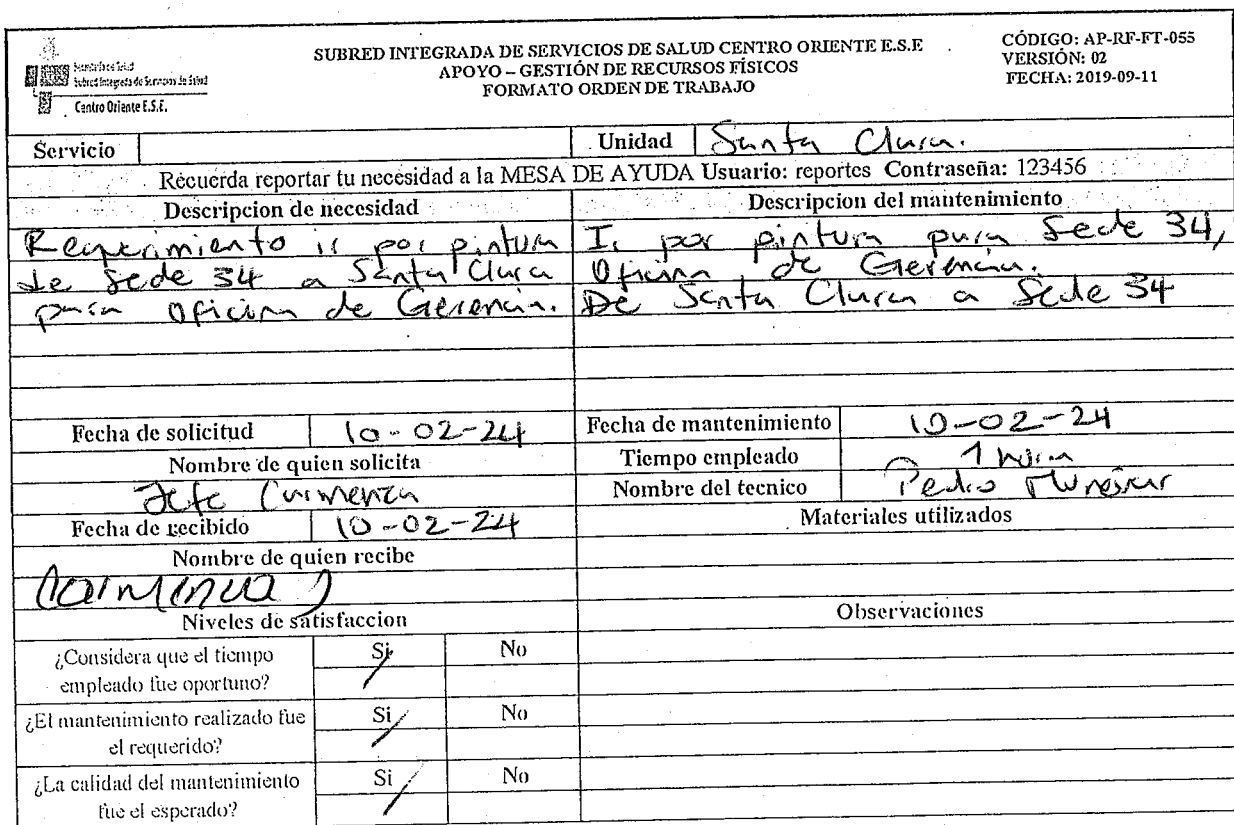 SUBRED INTEGRADA DE SERVICIOS DE SALUD CENTRO ORIENTE E.S.E
APOYO – GESTIÓN DE RECURSOS FÍSICOS
FORMATO ORDEN DE TRABAJO
CÓDIGO: AP-RF-FT-055
VERSIÓN: 02
FECHA: 2019-09-11
Subred Integrada de Servicios de Salud
Centro Oriente E.S.E.
Servicio
Unidad Santa Clara.
Recuerda reportar tu necesidad a la MESA DE AYUDA Usuario: reportes Contraseña: 123456
Descripcion de necesidad
Requerimiento ir por pintura
de Sede 34 a Santa Clara
para Oficina de Gerencia.
Descripcion del mantenimiento
Ir por pintura para Sede 34,
Oficina de Gerencia.
De Santa Clara a Sede 34
Fecha de solicitud 10-02-24
Nombre de quien solicita
Jefe Carmenza
Fecha de recibido 10-02-24
Nombre de quien recibe
Carmenza
Fecha de mantenimiento 10-02-24
Tiempo empleado 1 hora
Nombre del tecnico Pedro
Materiales utilizados
Niveles de satisfaccion
Observaciones
¿Considera que el tiempo
empleado fue oportuno?
Si No
¿El mantenimiento realizado fue
el requerido?
Si No
¿La calidad del mantenimiento
fue el esperado?
Si No